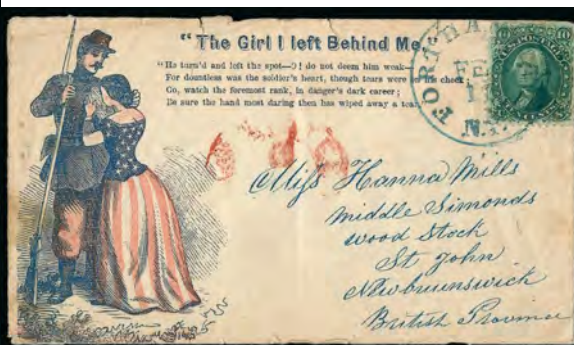 "The Girl I left Behind Me
"He turn'd and left the spot—O! do not deem him weak—
For dauntless was the soldier's heart, though tears were on his cheek
Go, watch the foremost rank, in danger's dark career;
Be sure the hand most daring then has wiped away a tear.
10 U.S. POSTAGE 10
N.Y.
Miss Hanna Mills
middle Simonds
wood Stock
St John
Newbrunswick
British Province